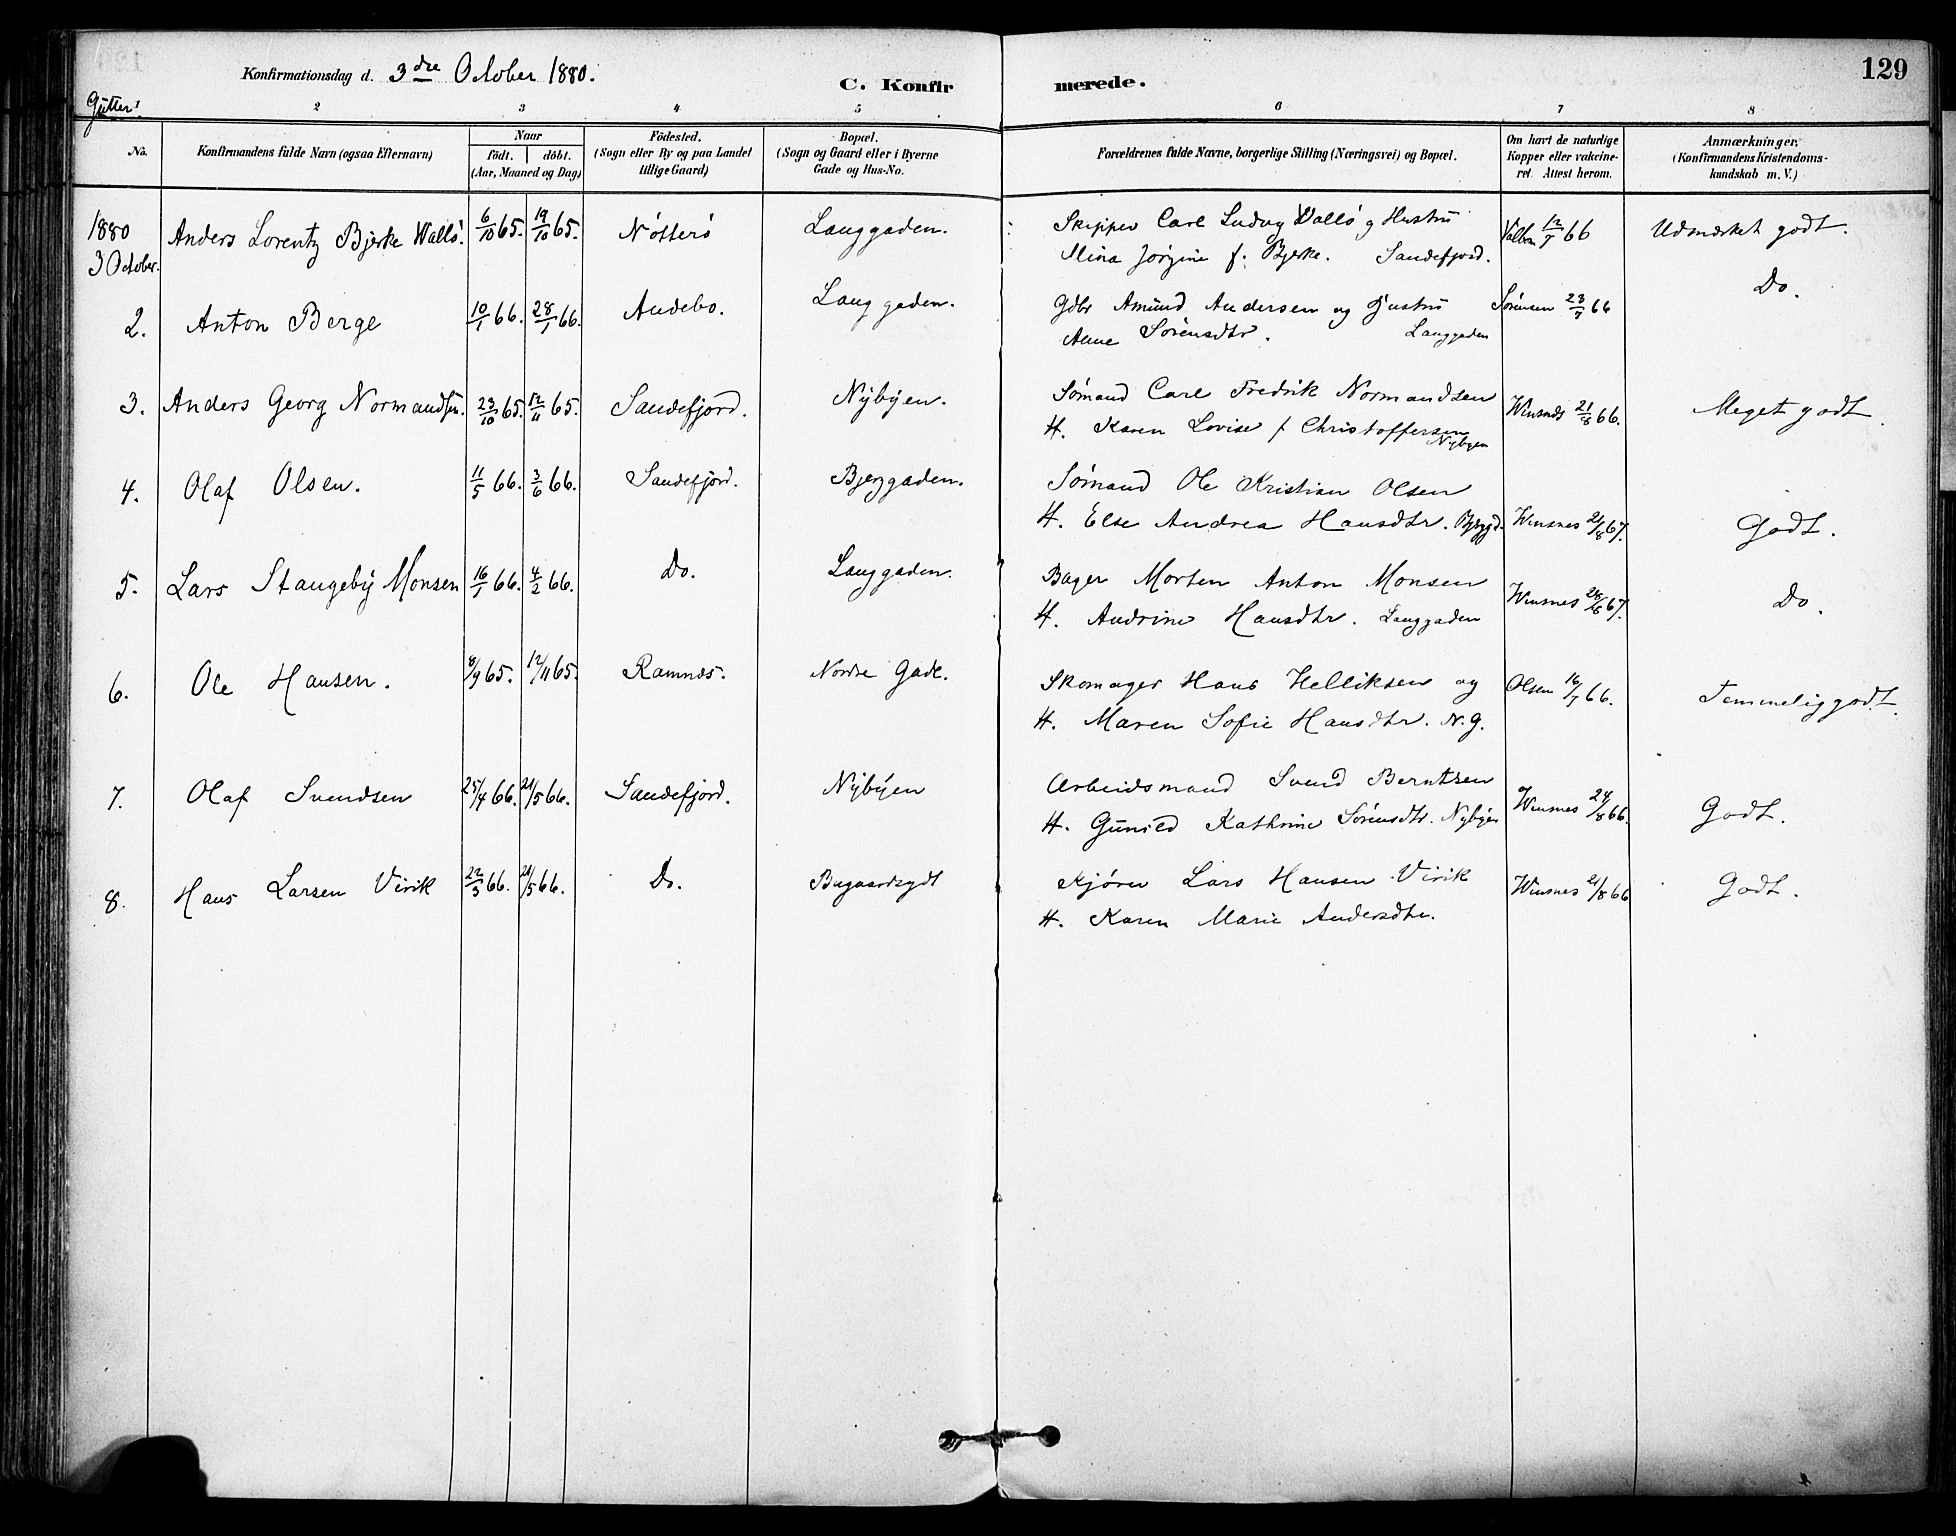 129
Konfirmationsdag d. 3dre October 1880.
C. Konfirmerede.
Gutter
1 2 3 4 5 6 7 8
No. Konfirmandens fulde Navn (ogsaa Efternavn) Naar födt. döbt. (Aar, Maaned og Dag) Födested. (Sogn eller By og paa Landet tillige Gaard) Bopæl. (Sogn og Gaard eller i Byerne Gade og Hus-No. Forældrenes fulde Navne, borgerlige Stilling (Næringsvei) og Bopæl. Om havt de naturlige Kopper eller vakcineret. Attest herom. Anmærkninger. (Konfirmandens Kristendomskundskab m. V.)
1880 3 October. Anders Lorentz Bjerke Wallö. 6/10 65. 19/10 65. Nötterö Langgaden. Skipper Carl Ludvig Wallö og Hustru 12/7 66 Udmærket godt.
Mina Jörgine f. Bjerke. Sandefjord.
2. Anton Berge 10/1 66. 28/1 66. Andebo. Langgaden. Gdbr Amund Andersen og Hustru Sörensen 23/7 66 Do.
Anne Sörensdtr. Langgaden
3. Anders Georg Normandsen. 23/10 65. 12/11 65. Sandefjord. Nybyen. Sömand Carl Fredrik Normandsen Winsnes 21/8 66. Meget godt.
H. Karen Lovise f Christoffersen Nybyen
4. Olaf Olsen. 11/5 66. 3/6 66. Sandefjord. Bjerggaden. Sömand Ole Kristian Olsen
H. Else Andrea Hansdtr. Bjergd. Winsnes 21/8 67. Godt.
5. Lars Stangeby Monsen 16/1 66. 4/2 66. Do. Langgaden. Bager Morten Anton Monsen Winsnes 67. Do.
H. Andrine Hansdtr. Langgaden
6. Ole Hansen. 8/9 65. 12/11 65. Ramnæs. Nordre Gade. Skomager Hans Helliksen og Olsen 16/7 66. Temmelig godt.
H. Maren Sofie Hansdtr. N.G.
7. Olaf Svendsen 25/4 66. 21/5 66. Sandefjord. Nybyen Arbeidsmand Svend Berntsen Winsnes 24/8 66. Godt.
H. Gunild Kathrine Sörensdtr. Nybyen
8. Hans Larsen Virik 22/3 66. 21/5 66. Do. Kjörer Lars Hansen Virik Winsnes 21/8 66 Godt.
H. Karen Marie Andersdtr.